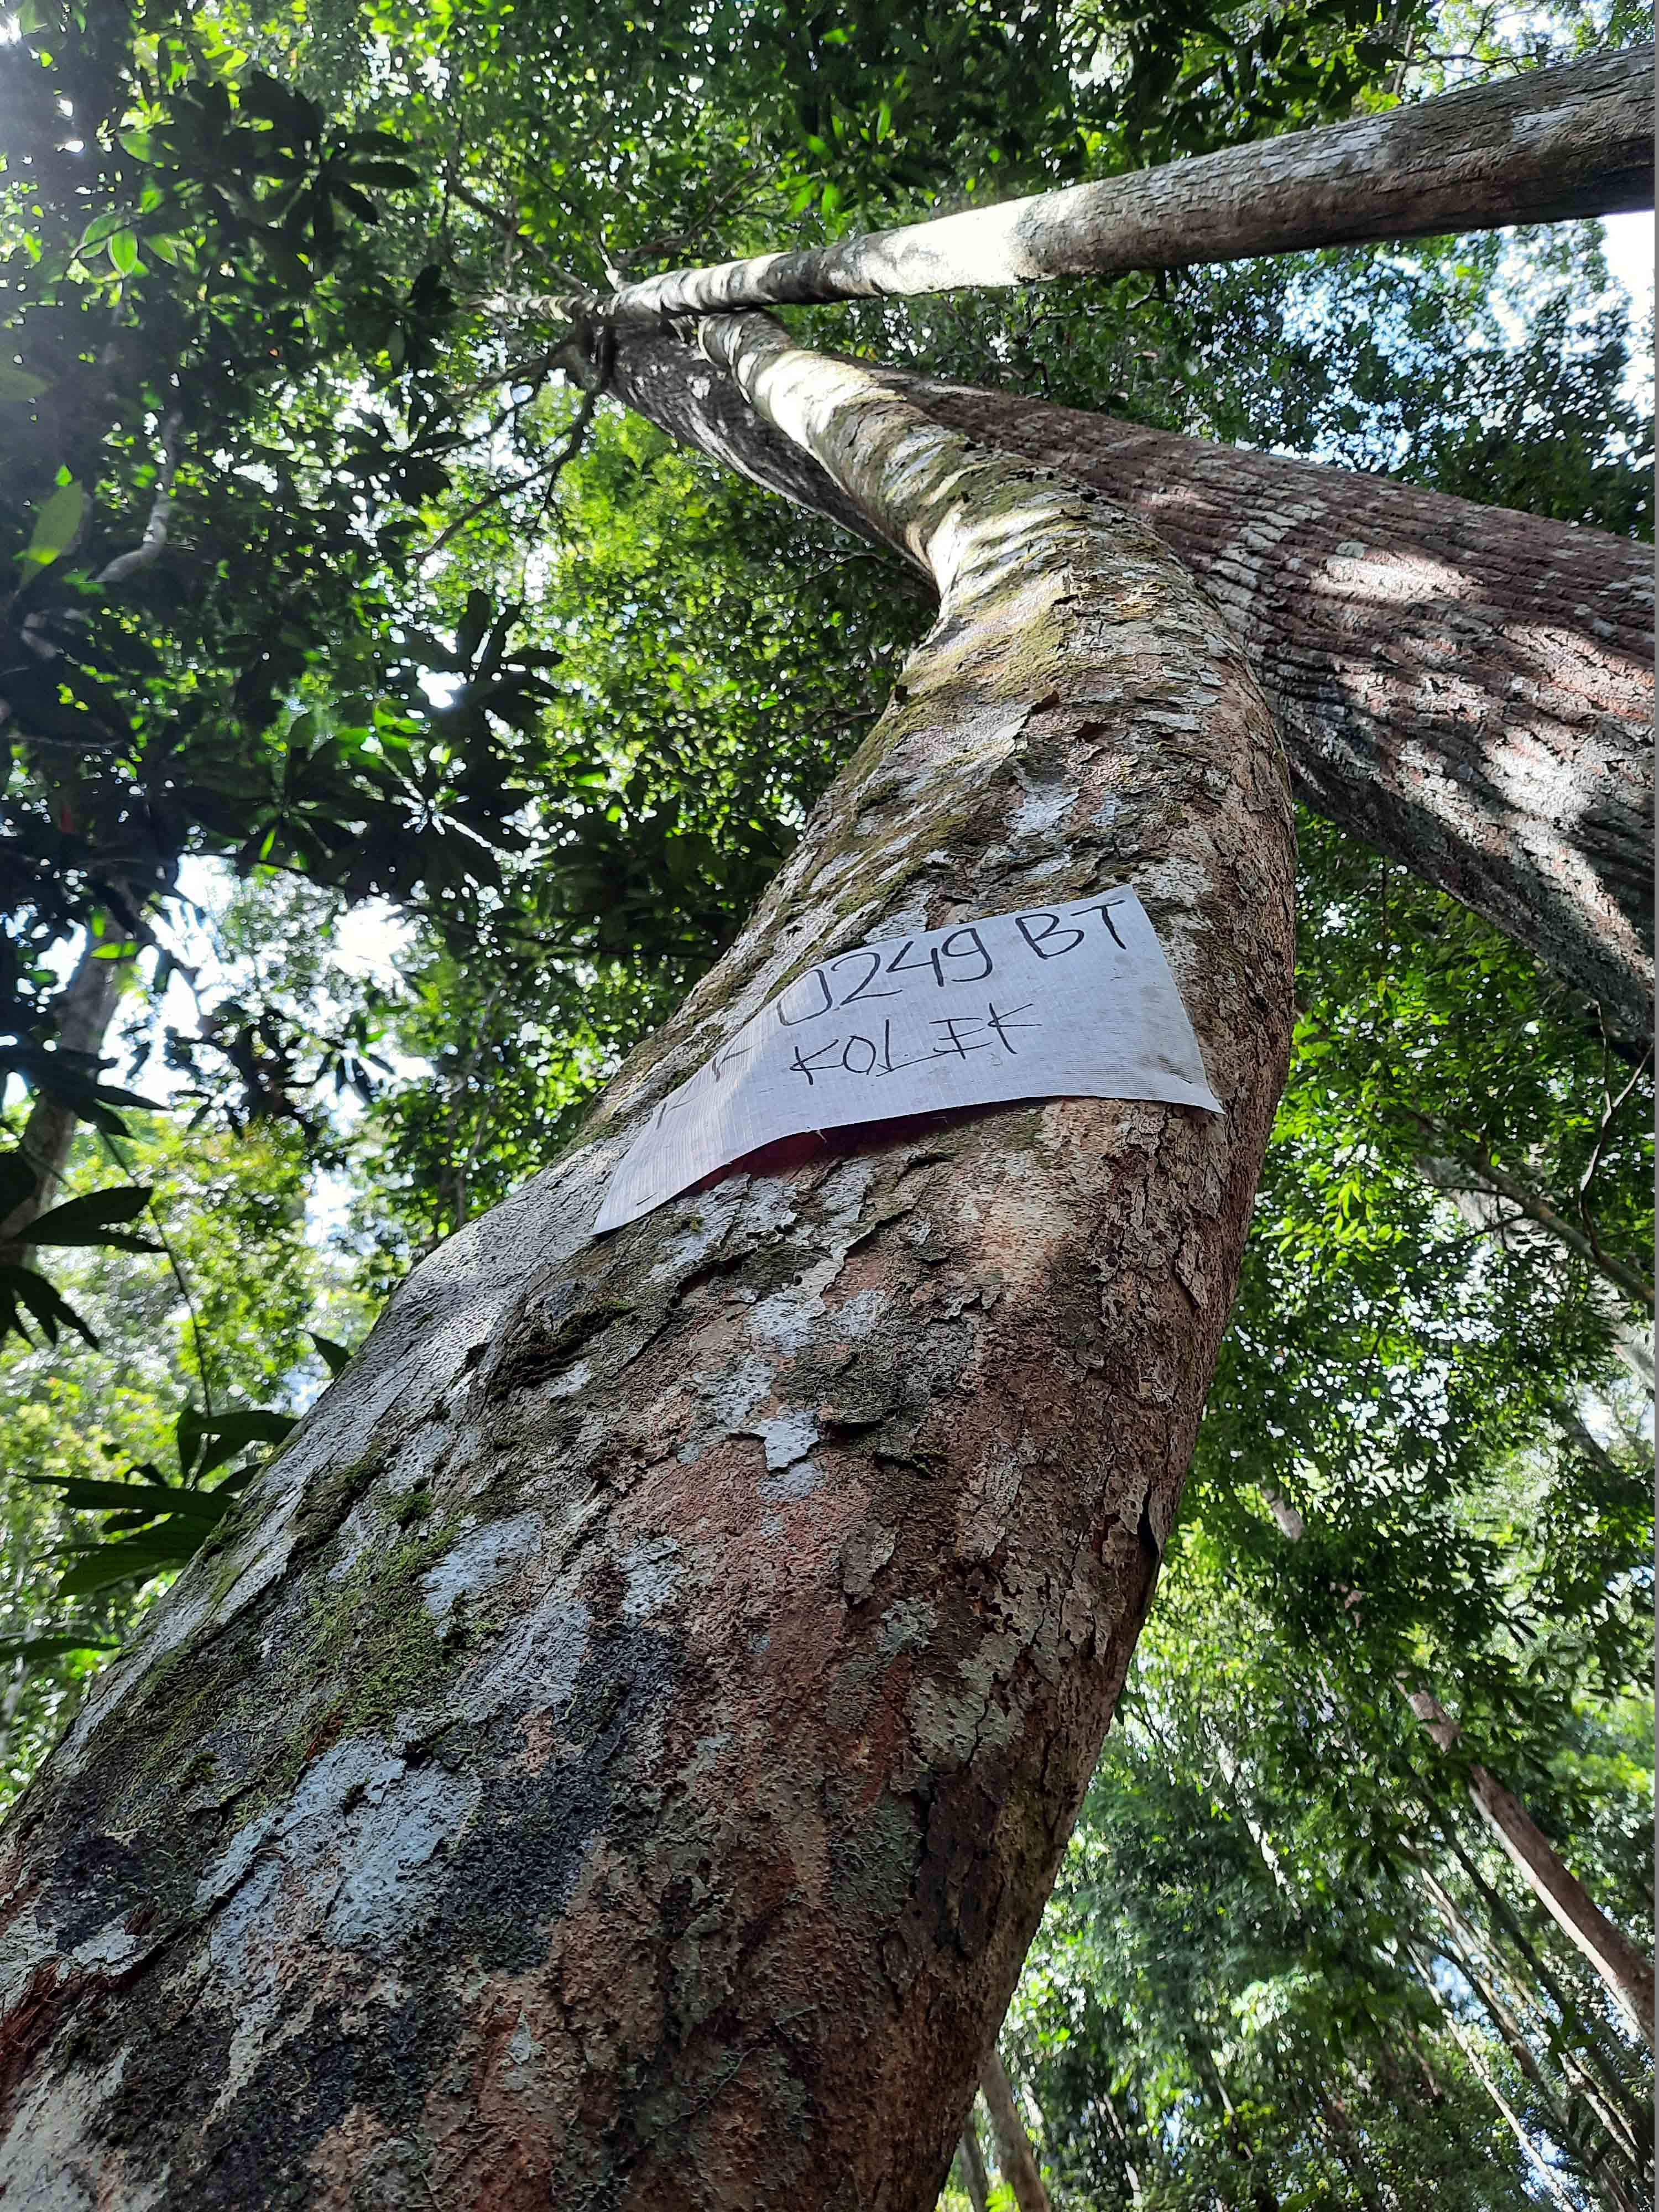 0249 BT
KOLEK